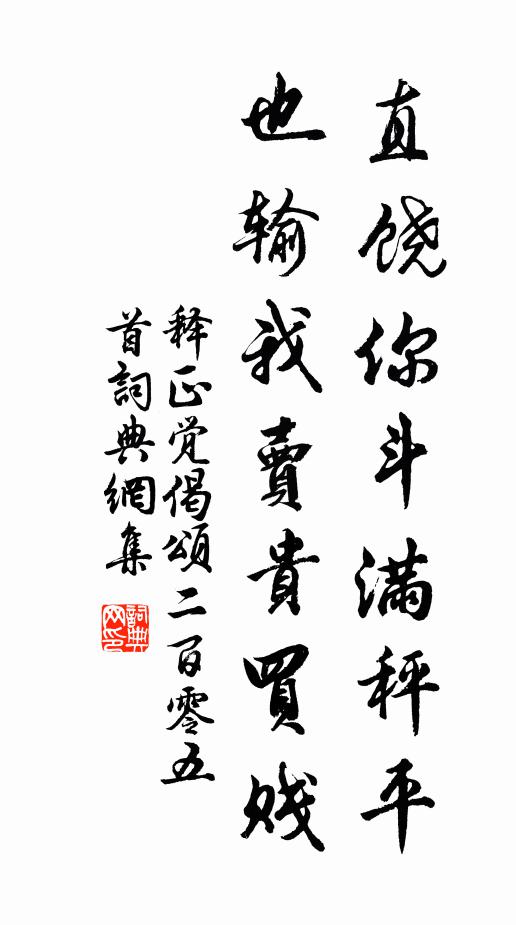 直饶你斗满秤平
也输我賣貴買贱
释正觉偈頌二百零五
首詞典網集
詞典网印